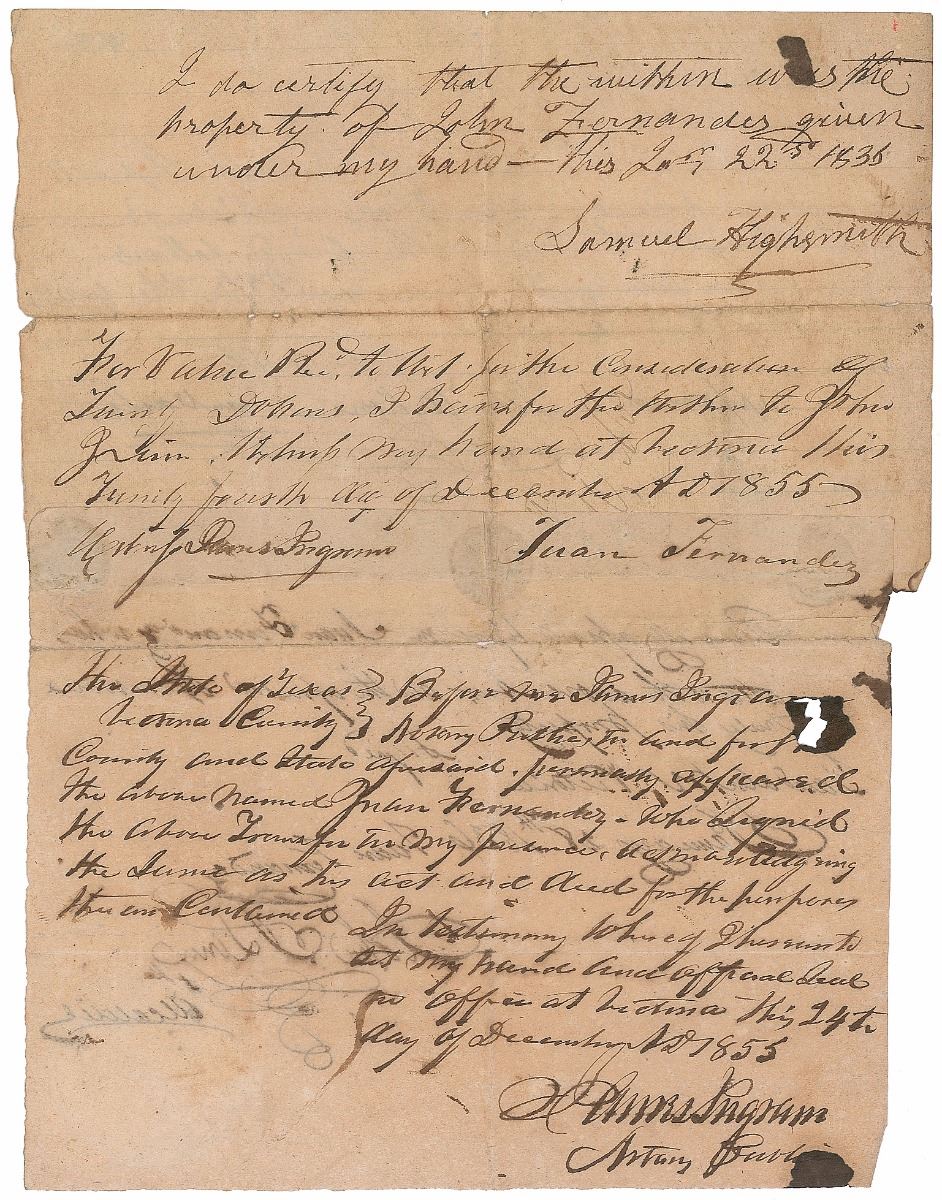 I do certify that the within was the
property of John Fernandes given
under my hand — this Jany 22nd 1836
Samuel Highsmith
For Value Recd, to wit for the Consideration of
Dollars, I transfer the within to John
Linn, Witness my hand at Victoria this
Twenty fourth day of December A D 1855
James Ingram Juan Fernandez
The State of Texas } Before me James Ingram
Victoria County } Notary Public, in and for
County and State aforesaid. personally appeared
the above named Juan Fernandez - Who Signed
the above Transfer in my presence, acknowledging
the Same as his act and deed for the purposes
therein Contained In testimony Whereof I hereunto
set my hand and official Seal
office at Victoria this 24th
day of December A D 1855
James Ingram
Notary Public